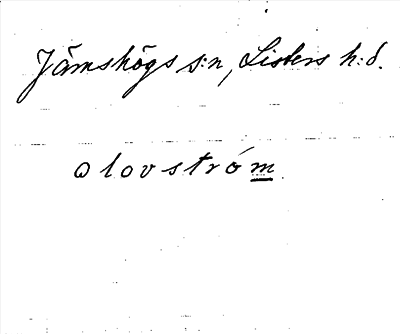 Jämshögs s:n, Listers h:d.
olovstróm